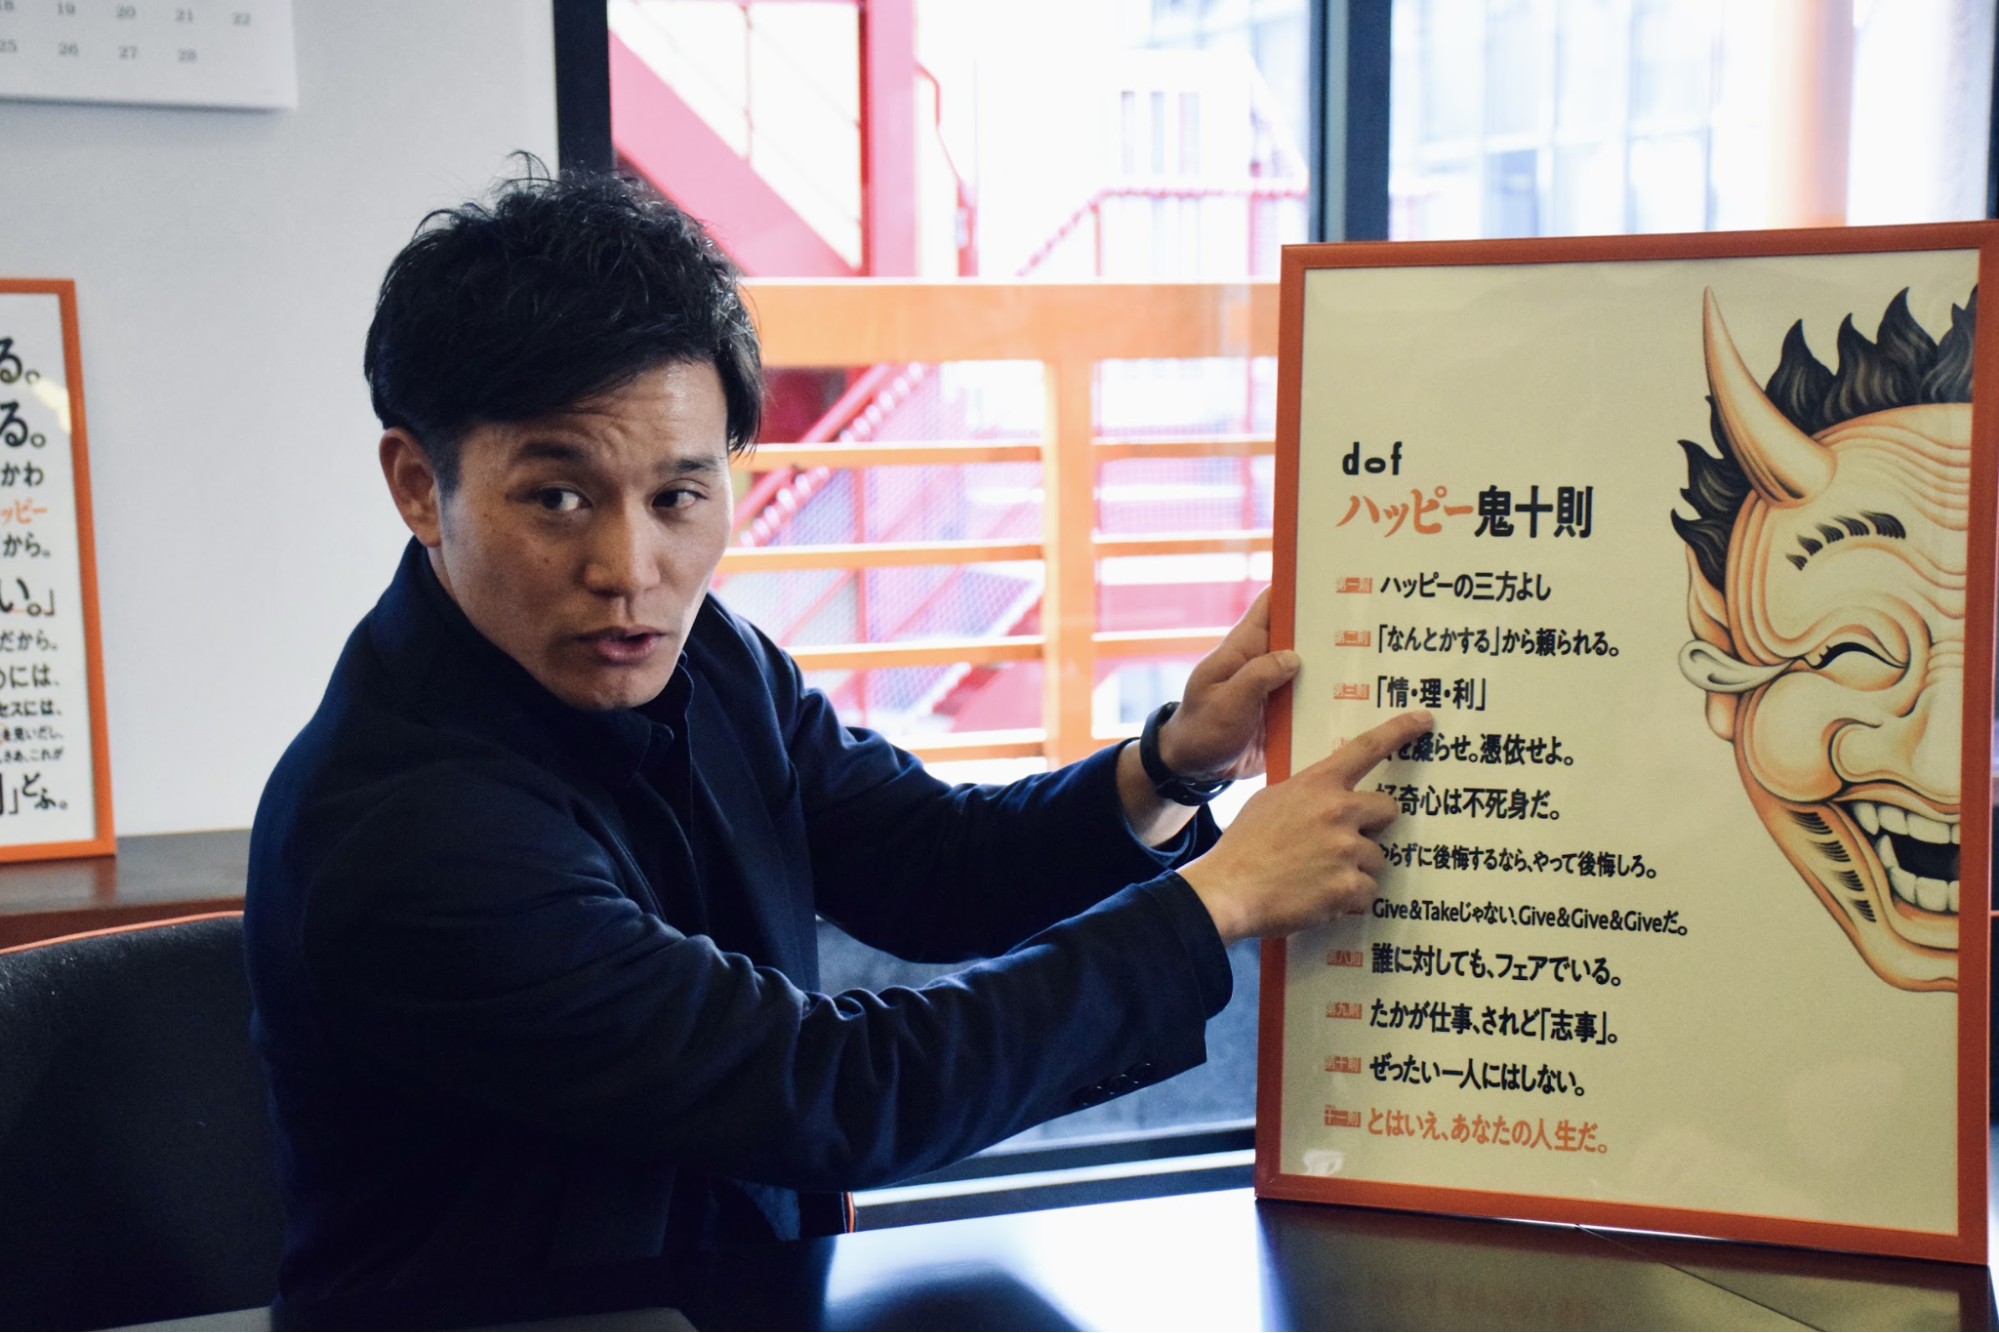 18 19 20 21 22
25 26 27 28
る。
る。
かわ
ッピー
から。
い。」
だから。
には、
セスには、
を見いだし、
さあ、これが
」どふ。
dof
ハッピー鬼十則
第一則 ハッピーの三方よし
第二則 「なんとかする」から頼られる。
第三則 「情・理・利」
を凝らせ。憑依せよ。
好奇心は不死身だ。
やらずに後悔するなら、やって後悔しろ。
Give&Takeじゃない、Give&Give&Giveだ。
第八則 誰に対しても、フェアでいる。
第九則 たかが仕事、されど「志事」。
第十則 ぜったい一人にはしない。
十一則 とはいえ、あなたの人生だ。